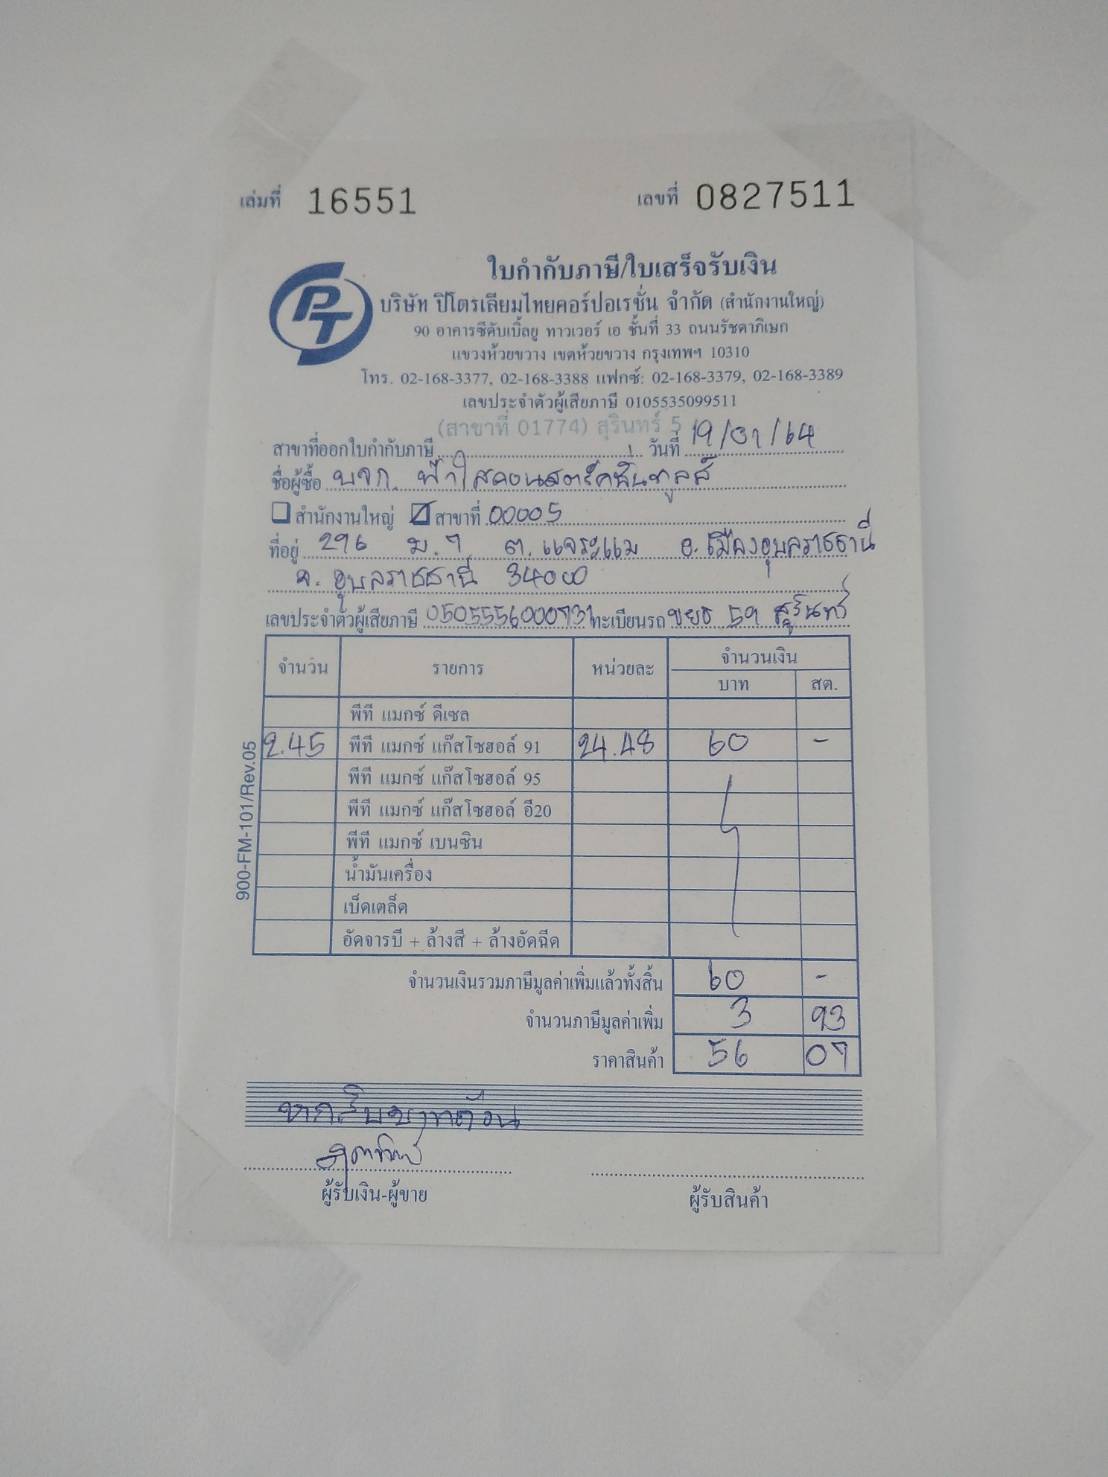 เล่มที่ 16551 เลขที่ 0827511
PT
ใบกำกับภาษี/ใบเสร็จรับเงิน
บริษัท ปิโตรเลียมไทยคอร์ปอเรชั่น จำกัด (สำนักงานใหญ่)
90 อาคารซีดับเบิ้ลยู ทาวเวอร์ เอ ชั้นที่ 33 ถนนรัชดาภิเษก
แขวงห้วยขวาง เขตห้วยขวาง กรุงเทพฯ 10310
โทร. 02-168-3377, 02-168-3388 แฟกซ์: 02-168-3379, 02-168-3389
เลขประจำตัวผู้เสียภาษี 0105535099511
(สาขาที่ 01774) สุรินทร์ 5
สาขาที่ออกใบกำกับภาษี วันที่ 19/01/64
ชื่อผู้ซื้อ บจก. ฟ้าใสคอนสตรัคชั่นทูลส์
สำนักงานใหญ่ สาขาที่ 00005
ที่อยู่ 296 ม.7 ต.แจระแม อ.เมืองอุบลราชธานี
จ.อุบลราชธานี 34000
เลขประจำตัวผู้เสียภาษี 0505556000731 ทะเบียนรถ 59 สุรินทร์
จำนวน รายการ หน่วยละ จำนวนเงิน
บาท สต.
พีที แมกซ์ ดีเซล
2.45 พีที แมกซ์ แก๊สโซฮอล์ 91 24.48 60 -
พีที แมกซ์ แก๊สโซฮอล์ 95
พีที แมกซ์ แก๊สโซฮอล์ อี20
พีที แมกซ์ เบนซิน
น้ำมันเครื่อง
เบ็ดเตล็ด
อัดจารบี + ล้างสี + ล้างอัดฉีด
จำนวนเงินรวมภาษีมูลค่าเพิ่มแล้วทั้งสิ้น 60 -
จำนวนภาษีมูลค่าเพิ่ม 3 93
ราคาสินค้า 56 07
หกสิบบาทถ้วน
ผู้รับเงิน-ผู้ขาย ผู้รับสินค้า
900-FM-101/Rev.05